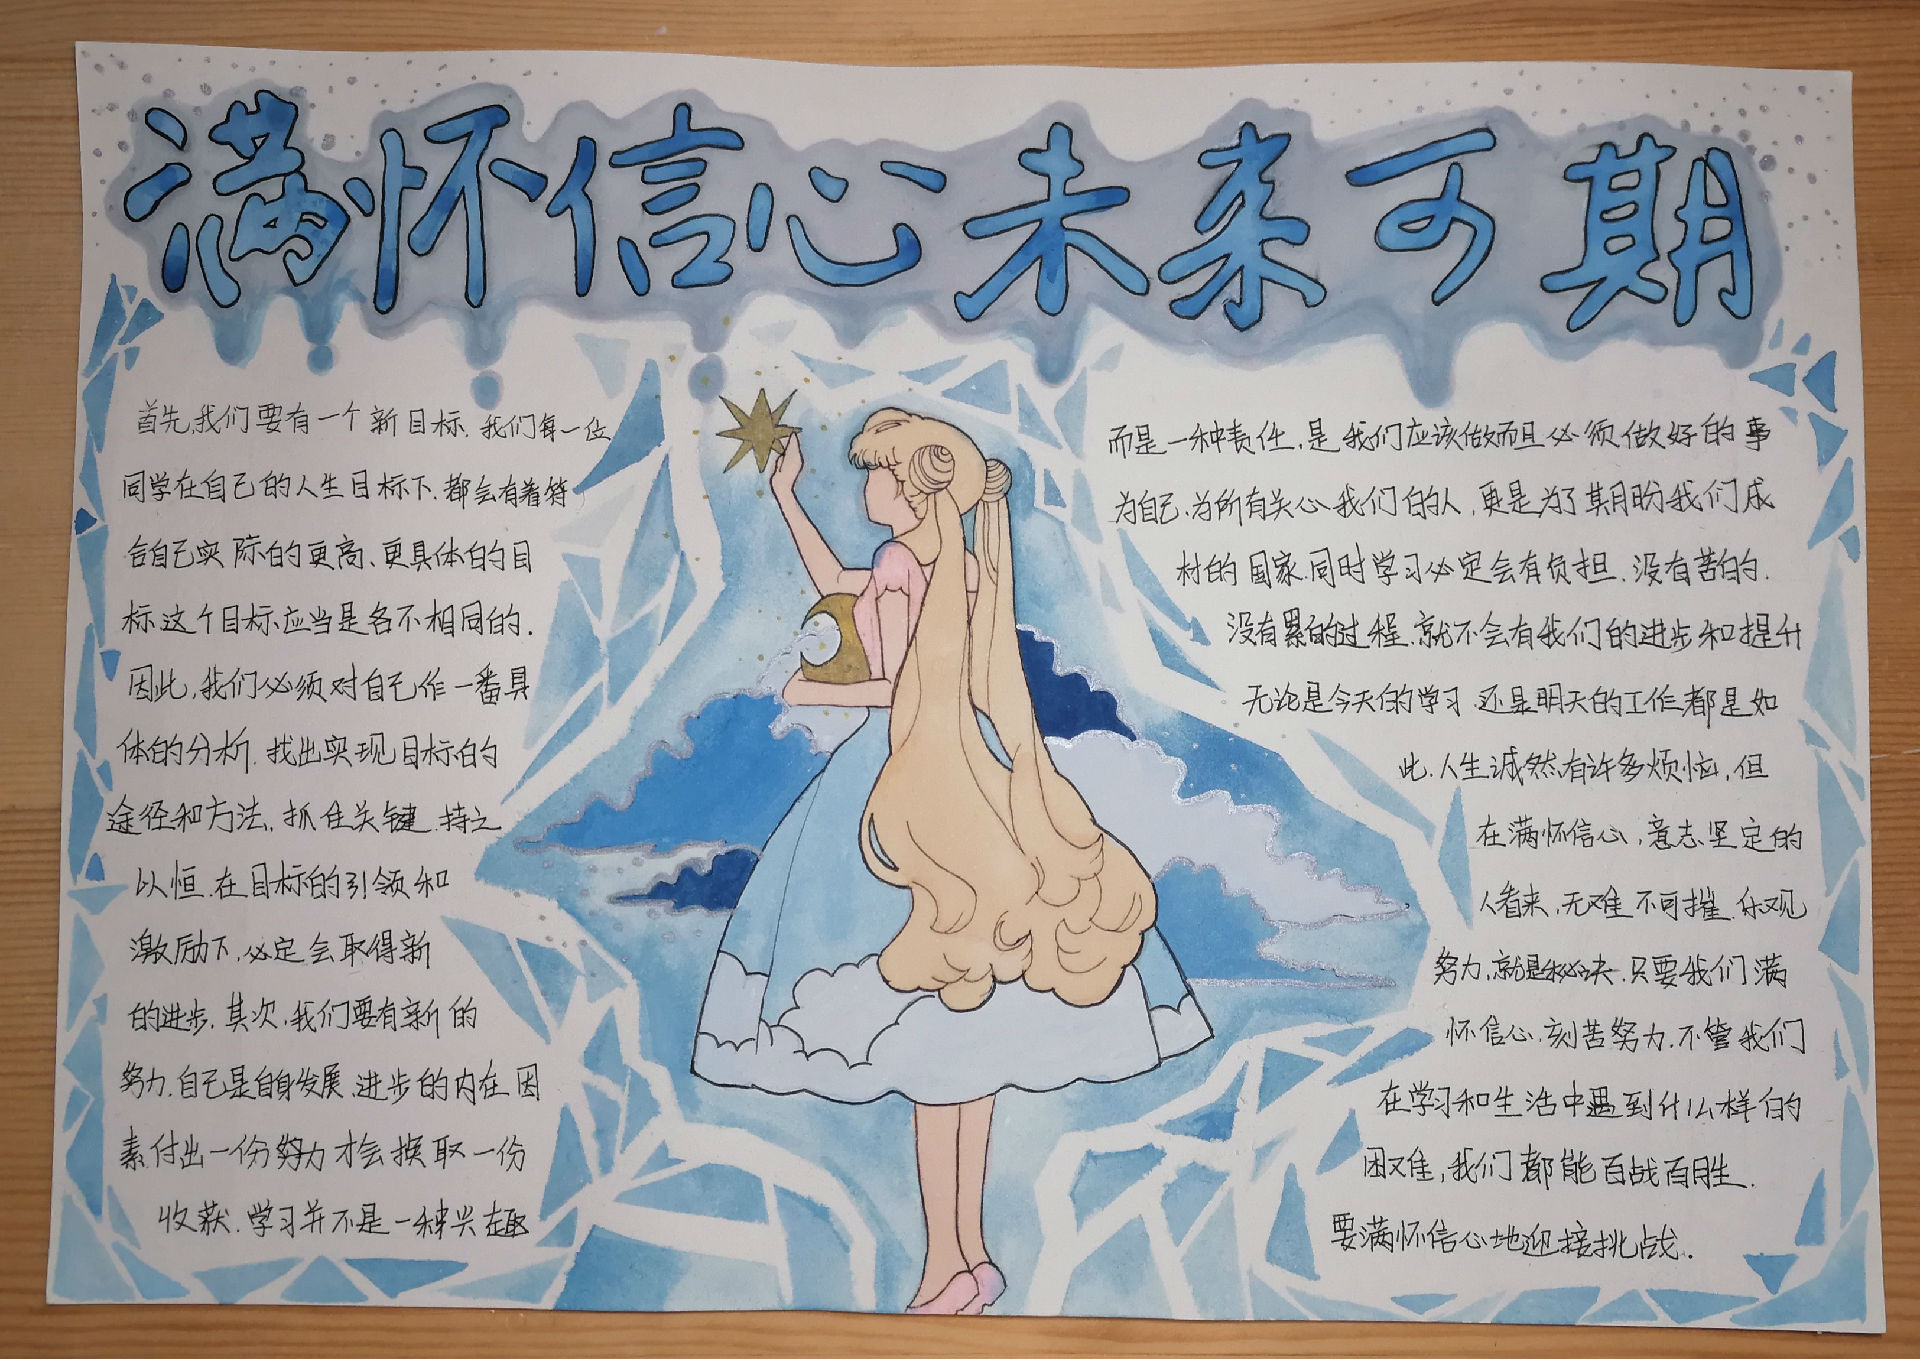 满怀信心未来可期
首先,我们要有一个新目标.我们每一位
同学在自己的人生目标下.都会有着符
合自己实际的更高、更具体的目
标这个目标应当是各不相同的.
因此,我们必须对自己作一番具
体的分析.找出实现目标的
途径和方法.抓住关键.持之
以恒.在目标的引领和
激励下,必定会取得新
的进步.其次,我们要有新的
努力.自己是自身发展、进步的内在因
素.付出一份努力才会换取一份
收获.学习并不是一种兴趣
而是一种责任.是我们应该做而且必须做好的事
为自己.为所有关心我们的人,更是为了期盼我们成
材的国家.同时学习必定会有负担.没有苦的.
没有累的过程.就不会有我们的进步和提升
无论是今天的学习.还是明天的工作都是如
此.人生诚然有许多烦恼,但
在满怀信心,意志坚定的
人看来,无难不可摧.乐观
努力.就是秘诀.只要我们满
怀信心.刻苦努力.不管我们
在学习和生活中遇到什么样的
困难,我们都能百战百胜.
要满怀信心地迎接挑战.